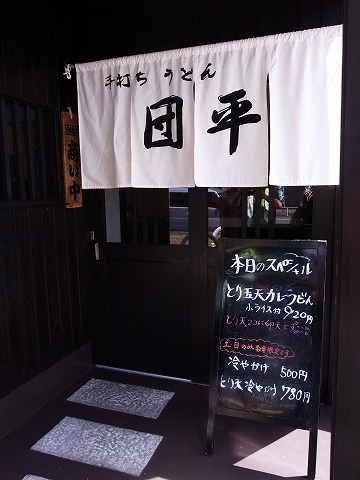 手打ちうどん
団平
商い中
本日のスペシャル
とり玉天カレーうどん
小ライス付 920円
土日のみ
冷やかけ 500円
とり天冷やかけ 780円